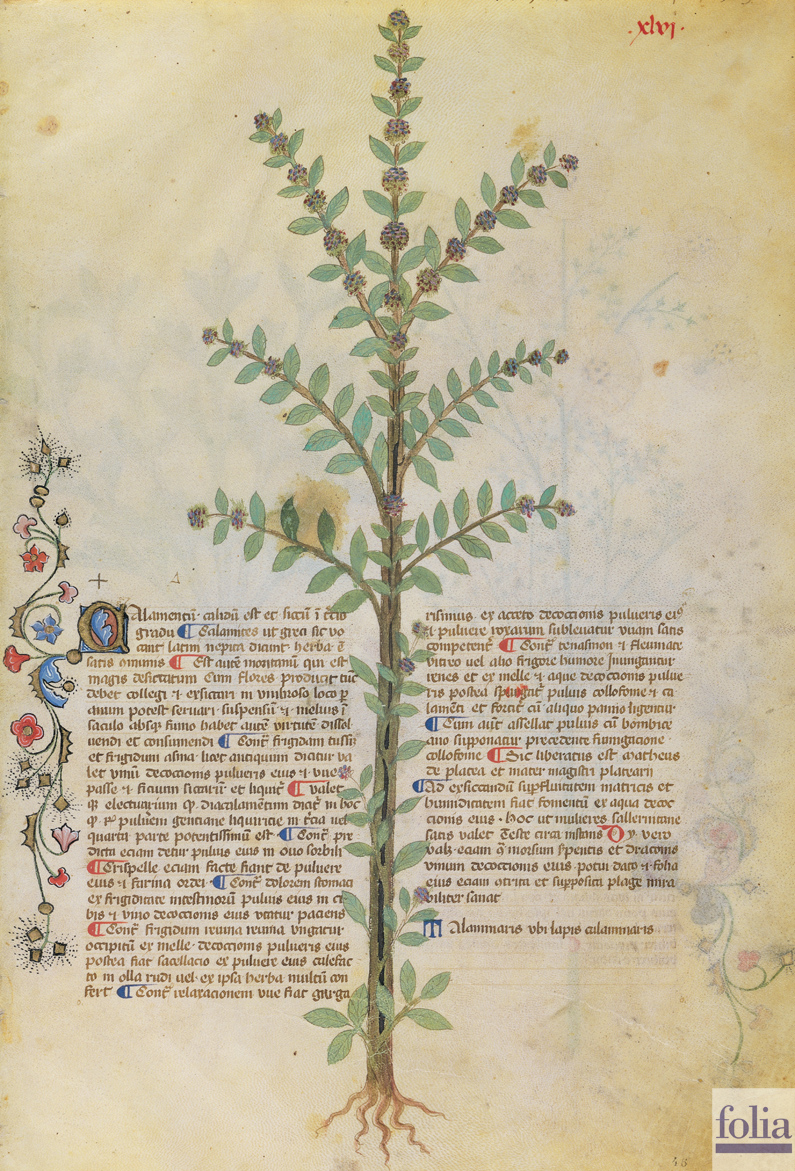 .xlvj.
Calamentũ· calidũ est et siccũ ĩ t̃cio
gradu ¶ Calamites ut greci sic vo
cant latini nepita dicunt herba ẽ
satis omunis ¶ Est autẽ montanũ qui est
magis desiccatiuum Cum flores producit tũc
debet collegi ⁊ exsicari in vmbroso loco p̱
anum potest seruari suspensũ ⁊ melius ĩ
saculo absq̃ fumo habet autẽ virtutẽ dissol
uendi et consumendi ¶ Contᷓ frigidam tussiʒ
et frigidum asma licet antiquum dicatur va
let vinũ decoccionis pulueris eius ⁊ vue
passe ⁊ ficuum siccarũ et liquir̃ ¶ valet
q̃ electuarium q̃ diacalamẽtum dicit̃ in hoc
q̃ pulũem genciane liquiricie in t̃cia uel
quarta parte potentissimũ est · ¶ Contᷓ pre
dicta eciam detur puluis eius in ouo sorbili
¶ Crispelle eciam facte fiant de puluere
eius ⁊ farina ordei · ¶ Contᷓ dolorem stomaci
ex frigiditate intestinorũ puluis eius in ci
bis ⁊ vino decoccionis eius vtatur paciens
¶ Contᷓ frigidum reuma reuma vngatur
occipitũ ex melle · decoccionis pulueris eius
postea fiat sacellacio ex puluere eius calefac
to in olla rudi uel · ex ipsa herba multũ con
fert ¶ Contᷓ relaxacionem vue fiat garga
risimus · ex acceto decoccionis pulueris ei⁹
⁊ puluere rosarum subleuatur vuam satis
competent̃ ¶ Contᷓ tenasmon ⁊ fleumate
vitreo vel alio frigore humore Inungantur
renes et ex melle ⁊ aque decoccionis pulue
ris postea puluis collofonie ⁊ ca
lamẽti et fortit̃ cũ aliquo panno ligentur
¶ Cum aut̃ assellat puluis cũ bombice
ano supponatur precedente fumigacione
collofonie ¶ Sic liberatus est matheus
de platea et mater magistri platearii
¶ Ad exsiccandũ supfluitatem matricis et
humiditatem fiat fomentũ ex aqua decoc
cionis eius · hoc ut mulieres sallernitane
satis valet Teste circa instans Oy· vero
valʒ eciam ↄ̃ morsum serpentis et draconis
vinum decoccionis eius · potui dato ⁊ folia
eius eciam et suppositi plage mira
biliter sanat
Calaminaris vbi lapis calaminaris
folia